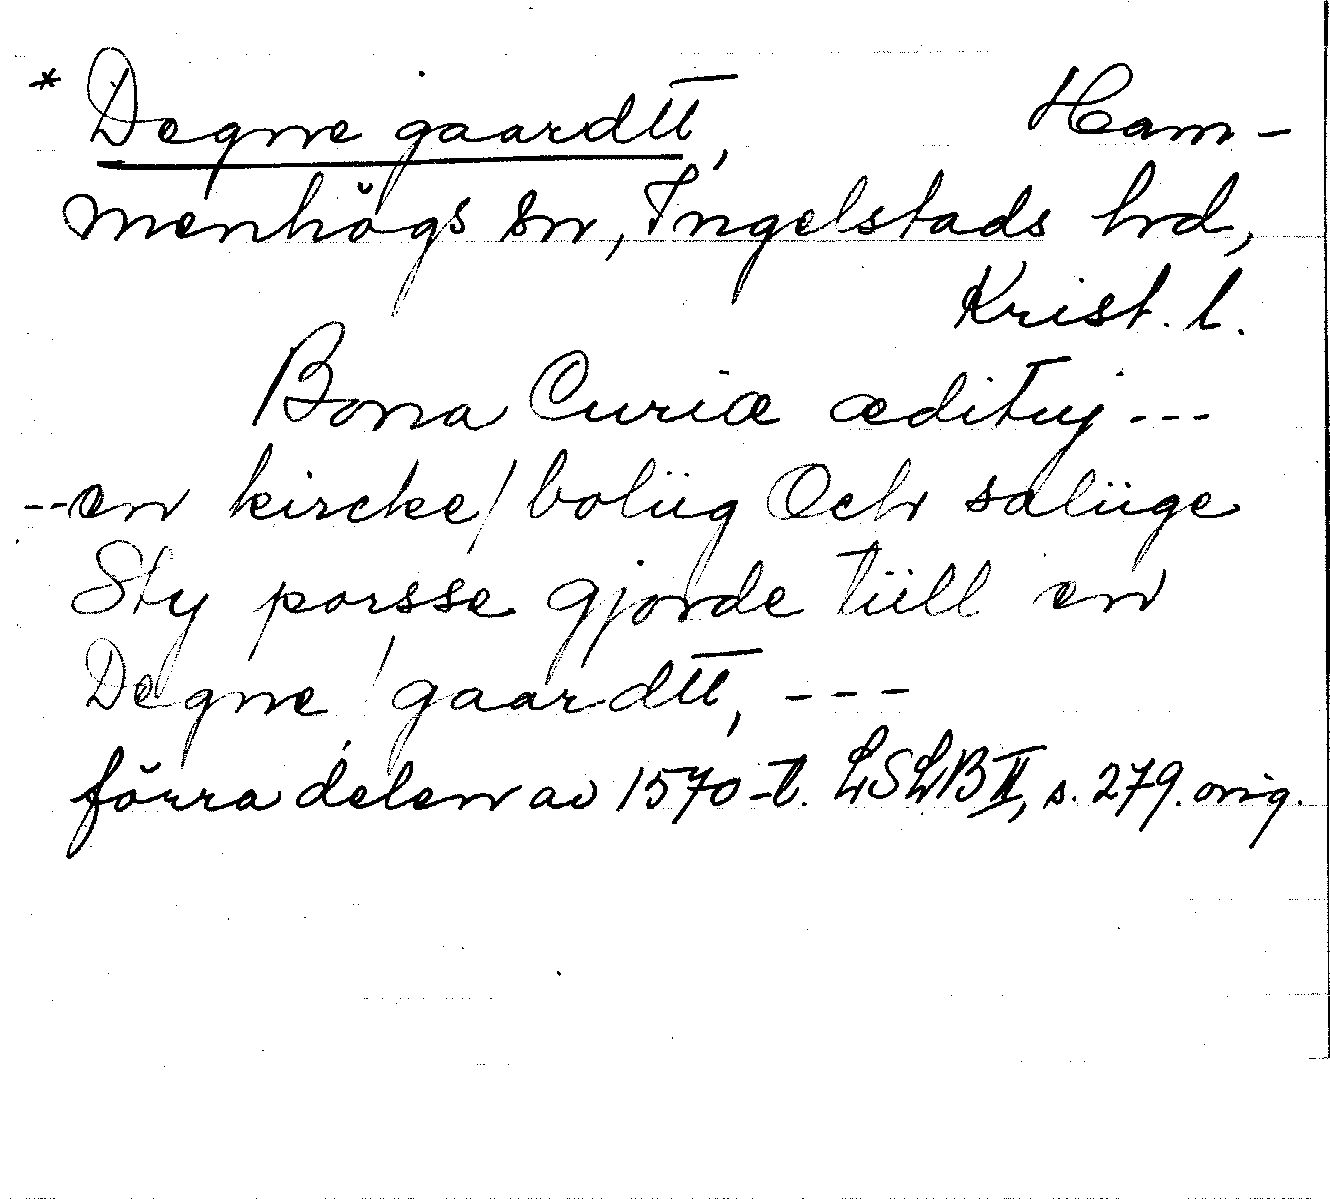 * Degne gaardtt, Ham-
menhögs sn, Ingelstads hd,
Krist. l.
Bona Curiæ ædituj ---
-- en kircke/ boliig Och saliige
Sty porsse gjorde tiill en
Degne / gaardtt, ---
förra delen av 1570-t. LSLB II, s. 279. orig.